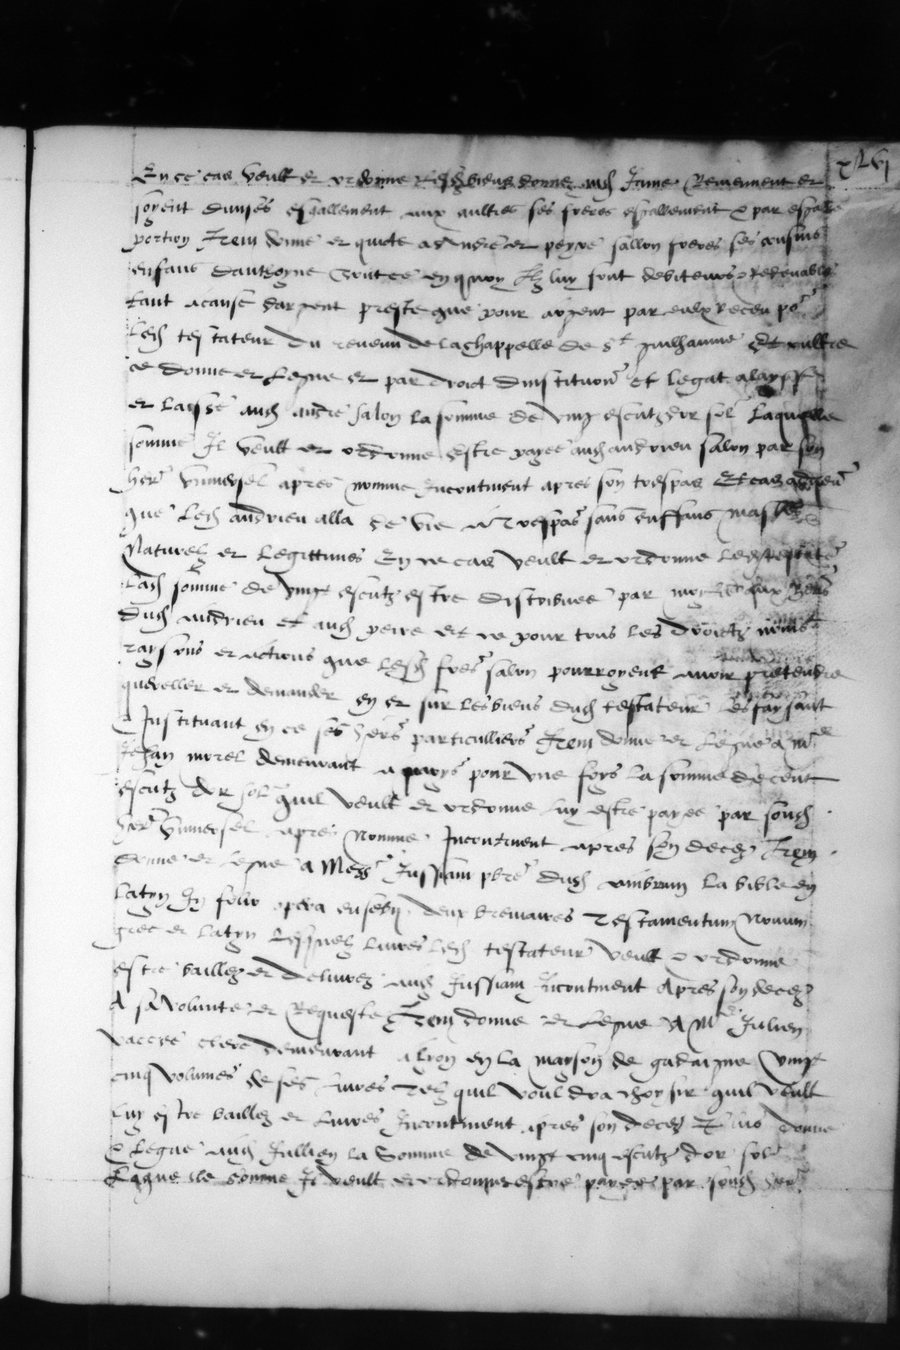 xlvj
En ce cas veult et ordonne lesd biens donnez aud Jame Reviennent et
soyent divisés esgallement aux aultres ses freres esgallement & par esgalle
portion Item donne et quicte a Andre et peyre sallon freres ses cousins
enfans danthoyne toutce en quoy Ilz luy sont debiteurs & Redevables
tant a cause dargent preste que pour argent par eulx receu po~
led testateur du revenu de la chappelle de St guilhaume Et oultre
ce donne et Legue et par droict dinstitution et legat a laysse
et laisse aud andre salon la somme de vingt escutz dor sol Laquelle
somme Il veult et ordonne estre payee aud andrieu salon par son
her~ universel apres nomme Incontinent apres son trespas Et cas advenu~
que led andrieu alla de vie a trespas sans enffans masles
Naturelz et Legittimes En ce cas veult et ordonne led testate~
lad somme de vingt escutz estre distribuee par aux hers
dud andrieu et aud peire et ce pour tous les droictz noms
raysons et actions que lesd fres salon pourroyent avoir pretendre
quereller et demander en et sur les biens dud testateur les faysant
& Instituant en ce ses hers particulliers Item donne et legue a me
Jehan morel demeurant a parys pour une foys la somme de cent
escutz dor sol quil veult et ordonne luy estre payee par sond
her~ universel apres Nomme Incontinent apres son decez Item
donne et legue a Mess~ Jussiam pbre~ dud ambrun la bible en
latyn In folio opera eusebij deux breviaires Testamentum Novum
grec et latyn Lesquelz livres led testateur veult & ordonne
estre baillez et delivrez aud Jussiam Incontinent Apres son decez
A sa volunte et Requeste Item donne et Legue A Me Julien
vacces clerc demeurant a lyon en la mayson de gadaigne vingt
cinq volumes de ses livres telz quil vouldra choysir quil veult
luy estre baillez et livres Incontinent apres son decez donne
& legue aud Jullien la Somme de vingt cinq escutz dor sol
Laquelle somme Il veult et ordonne estre payee par sond her~